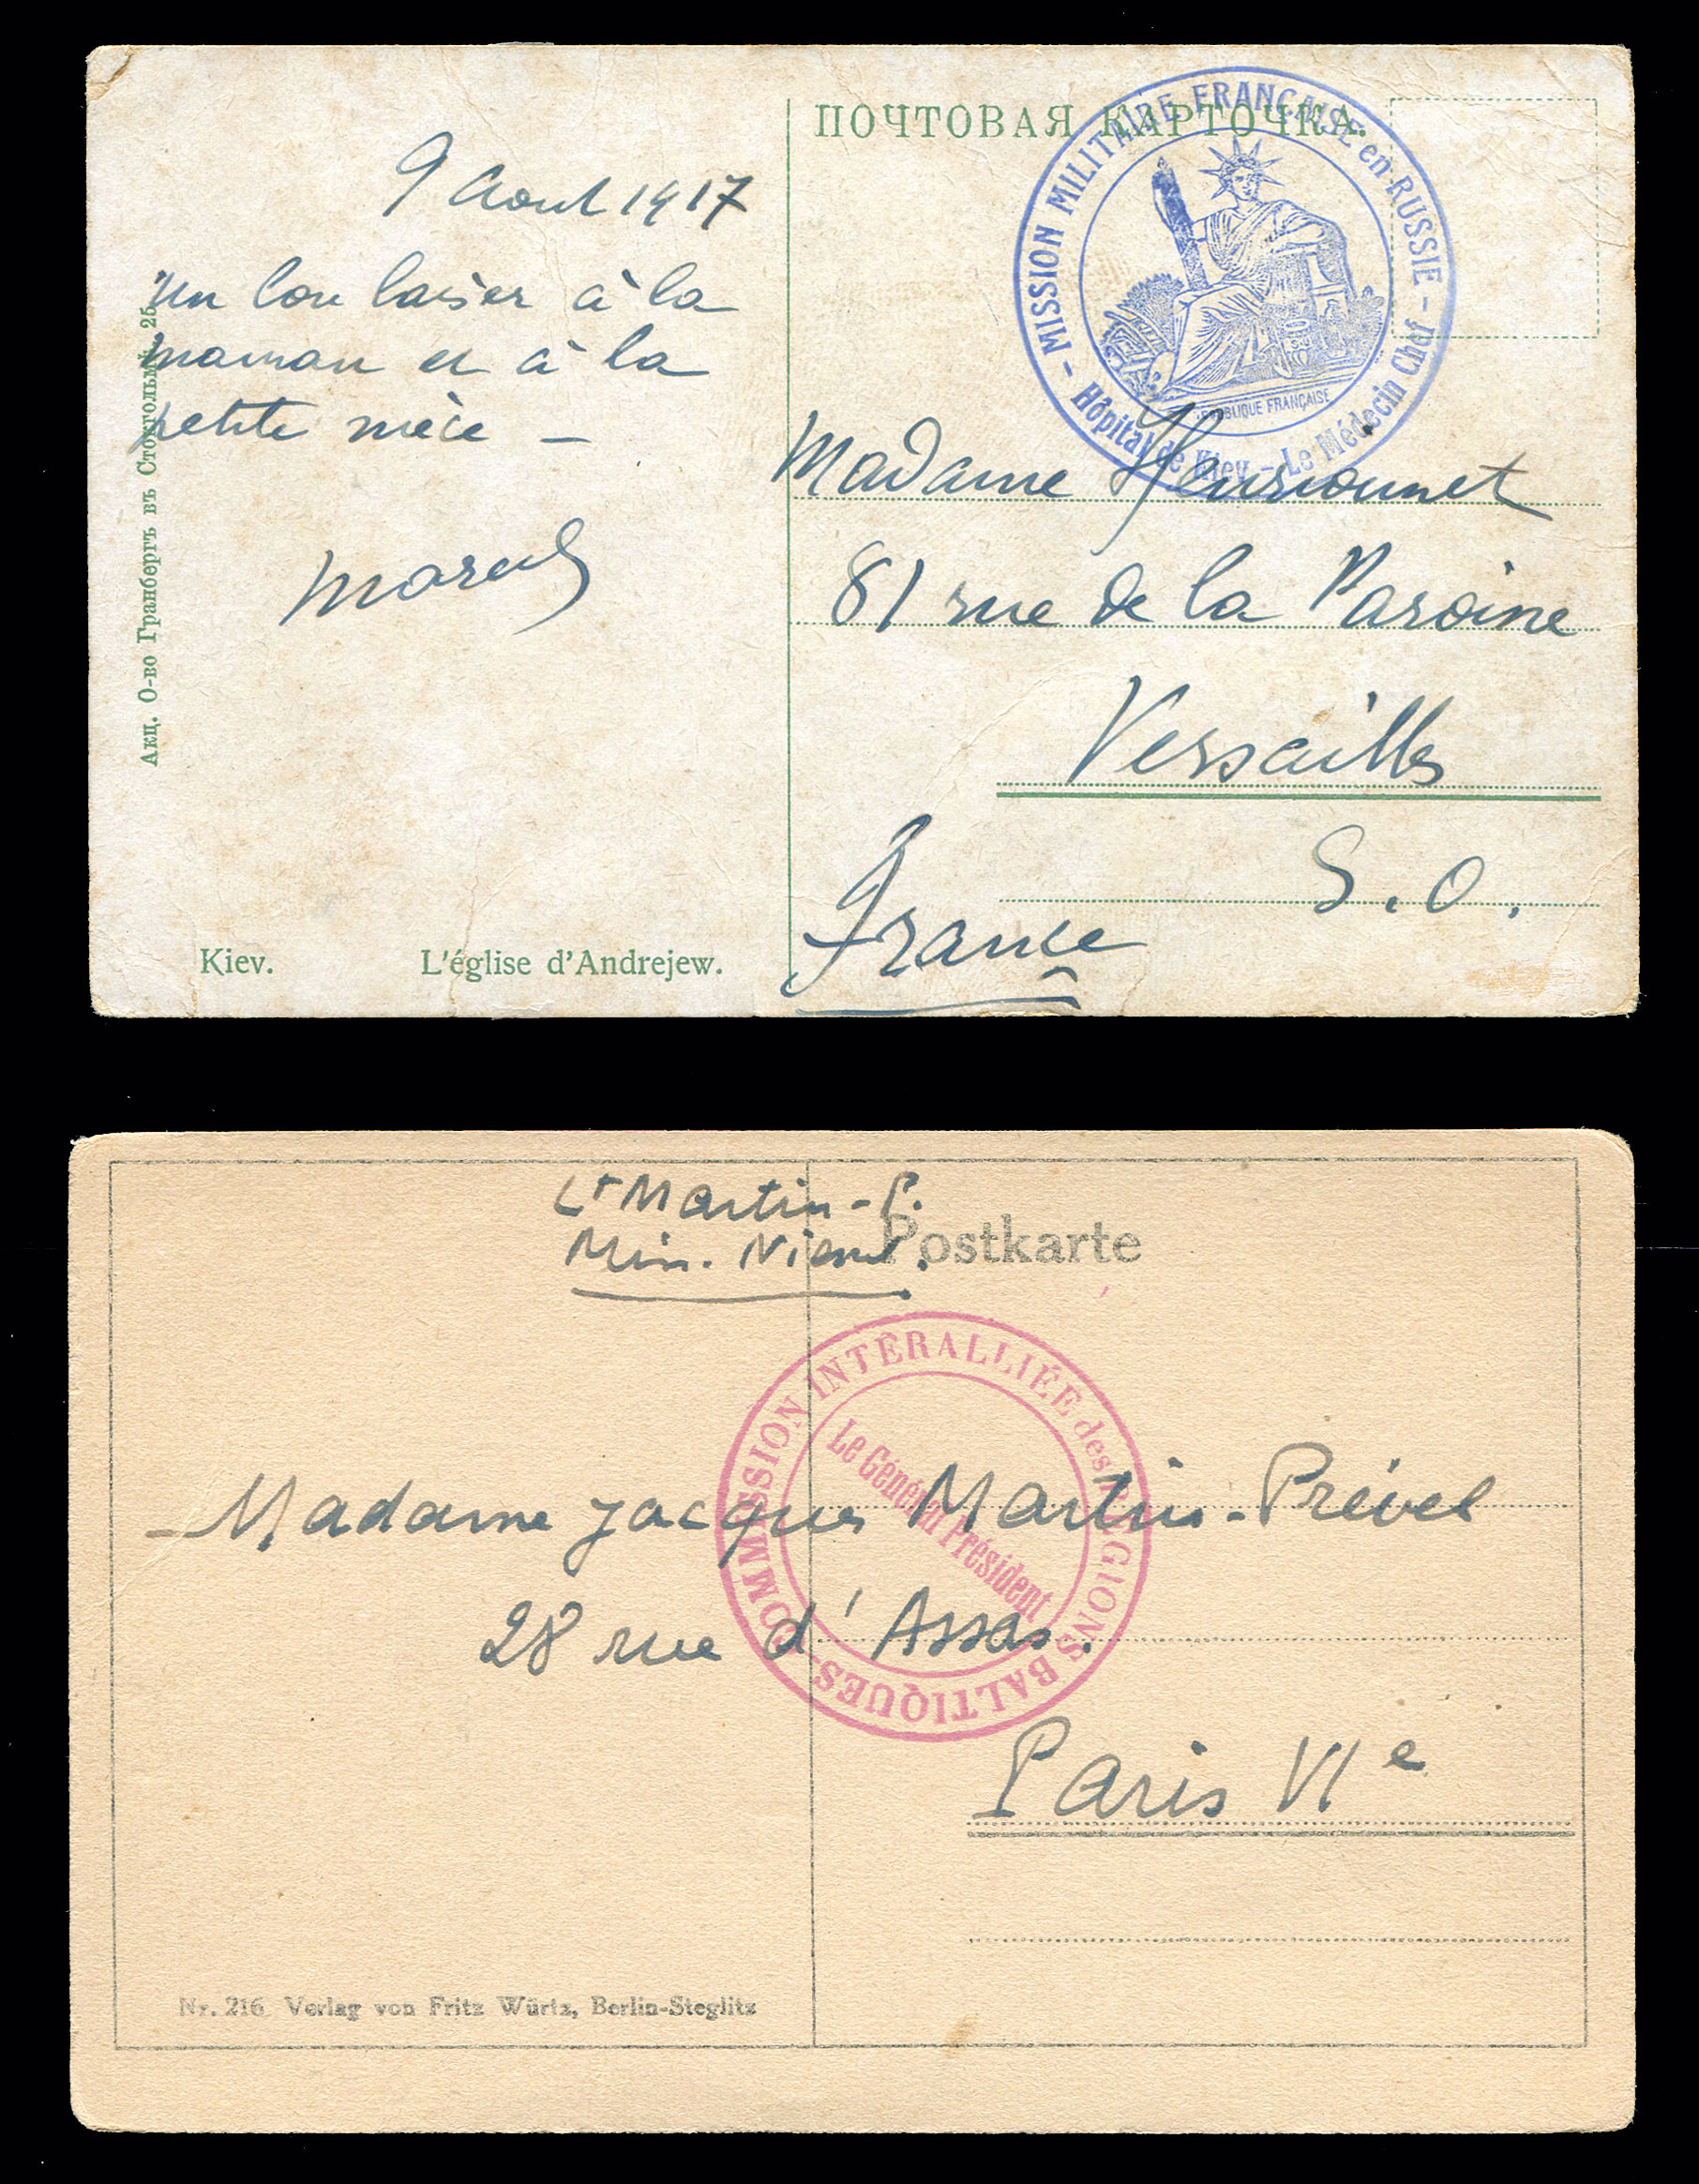 ПОЧТОВАЯ КАРТОЧКА.
- MISSION MILITAIRE FRANÇAISE en RUSSIE -
Hôpital de Kiev - Le Médecin Chef
RÉPUBLIQUE FRANÇAISE
9 Aout 1917
Un bon baiser à la
maman et à la
petite nièce -
Marcel
Акц. О-во Гранбергъ въ Стокгольмѣ. 25
Kiev. L'église d'Andrejew.
Madame
81 rue de la Paroisse
Versailles
S. O.
France
Lt Martin-P.
Miss. Niessel.
Postkarte
COMMISSION INTERALLIÉE des RÉGIONS BALTIQUES
Le Général Président
Madame Jacques Martin-Prével
28 rue d'Assas.
Paris VIe
Nr. 216 Verlag von Fritz Würtz, Berlin-Steglitz